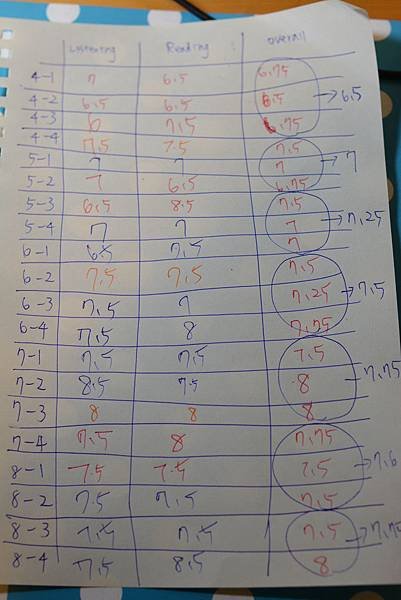 Listening Reading Overall
4-1 7 6.5 6.75
4-2 6.5 6.5 6.5 → 6.5
4-3 6 7.5 6.75
4-4 7.5 7.5 7.5
5-1 7 7 7 → 7
5-2 7 6.5 6.75
5-3 6.5 8.5 7.5
5-4 7 7 7 → 7.25
6-1 6.5 7.5 7
6-2 7.5 7.5 7.5
6-3 7.5 7 7.25 → 7.5
6-4 7.5 8 7.75
7-1 7.5 7.5 7.5
7-2 8.5 7.5 8 → 7.75
7-3 8 8 8
7-4 7.5 8 7.75
8-1 7.5 7.5 7.5 → 7.6
8-2 7.5 7.5 7.5
8-3 7.5 7.5 7.5 → 7.75
8-4 7.5 8.5 8